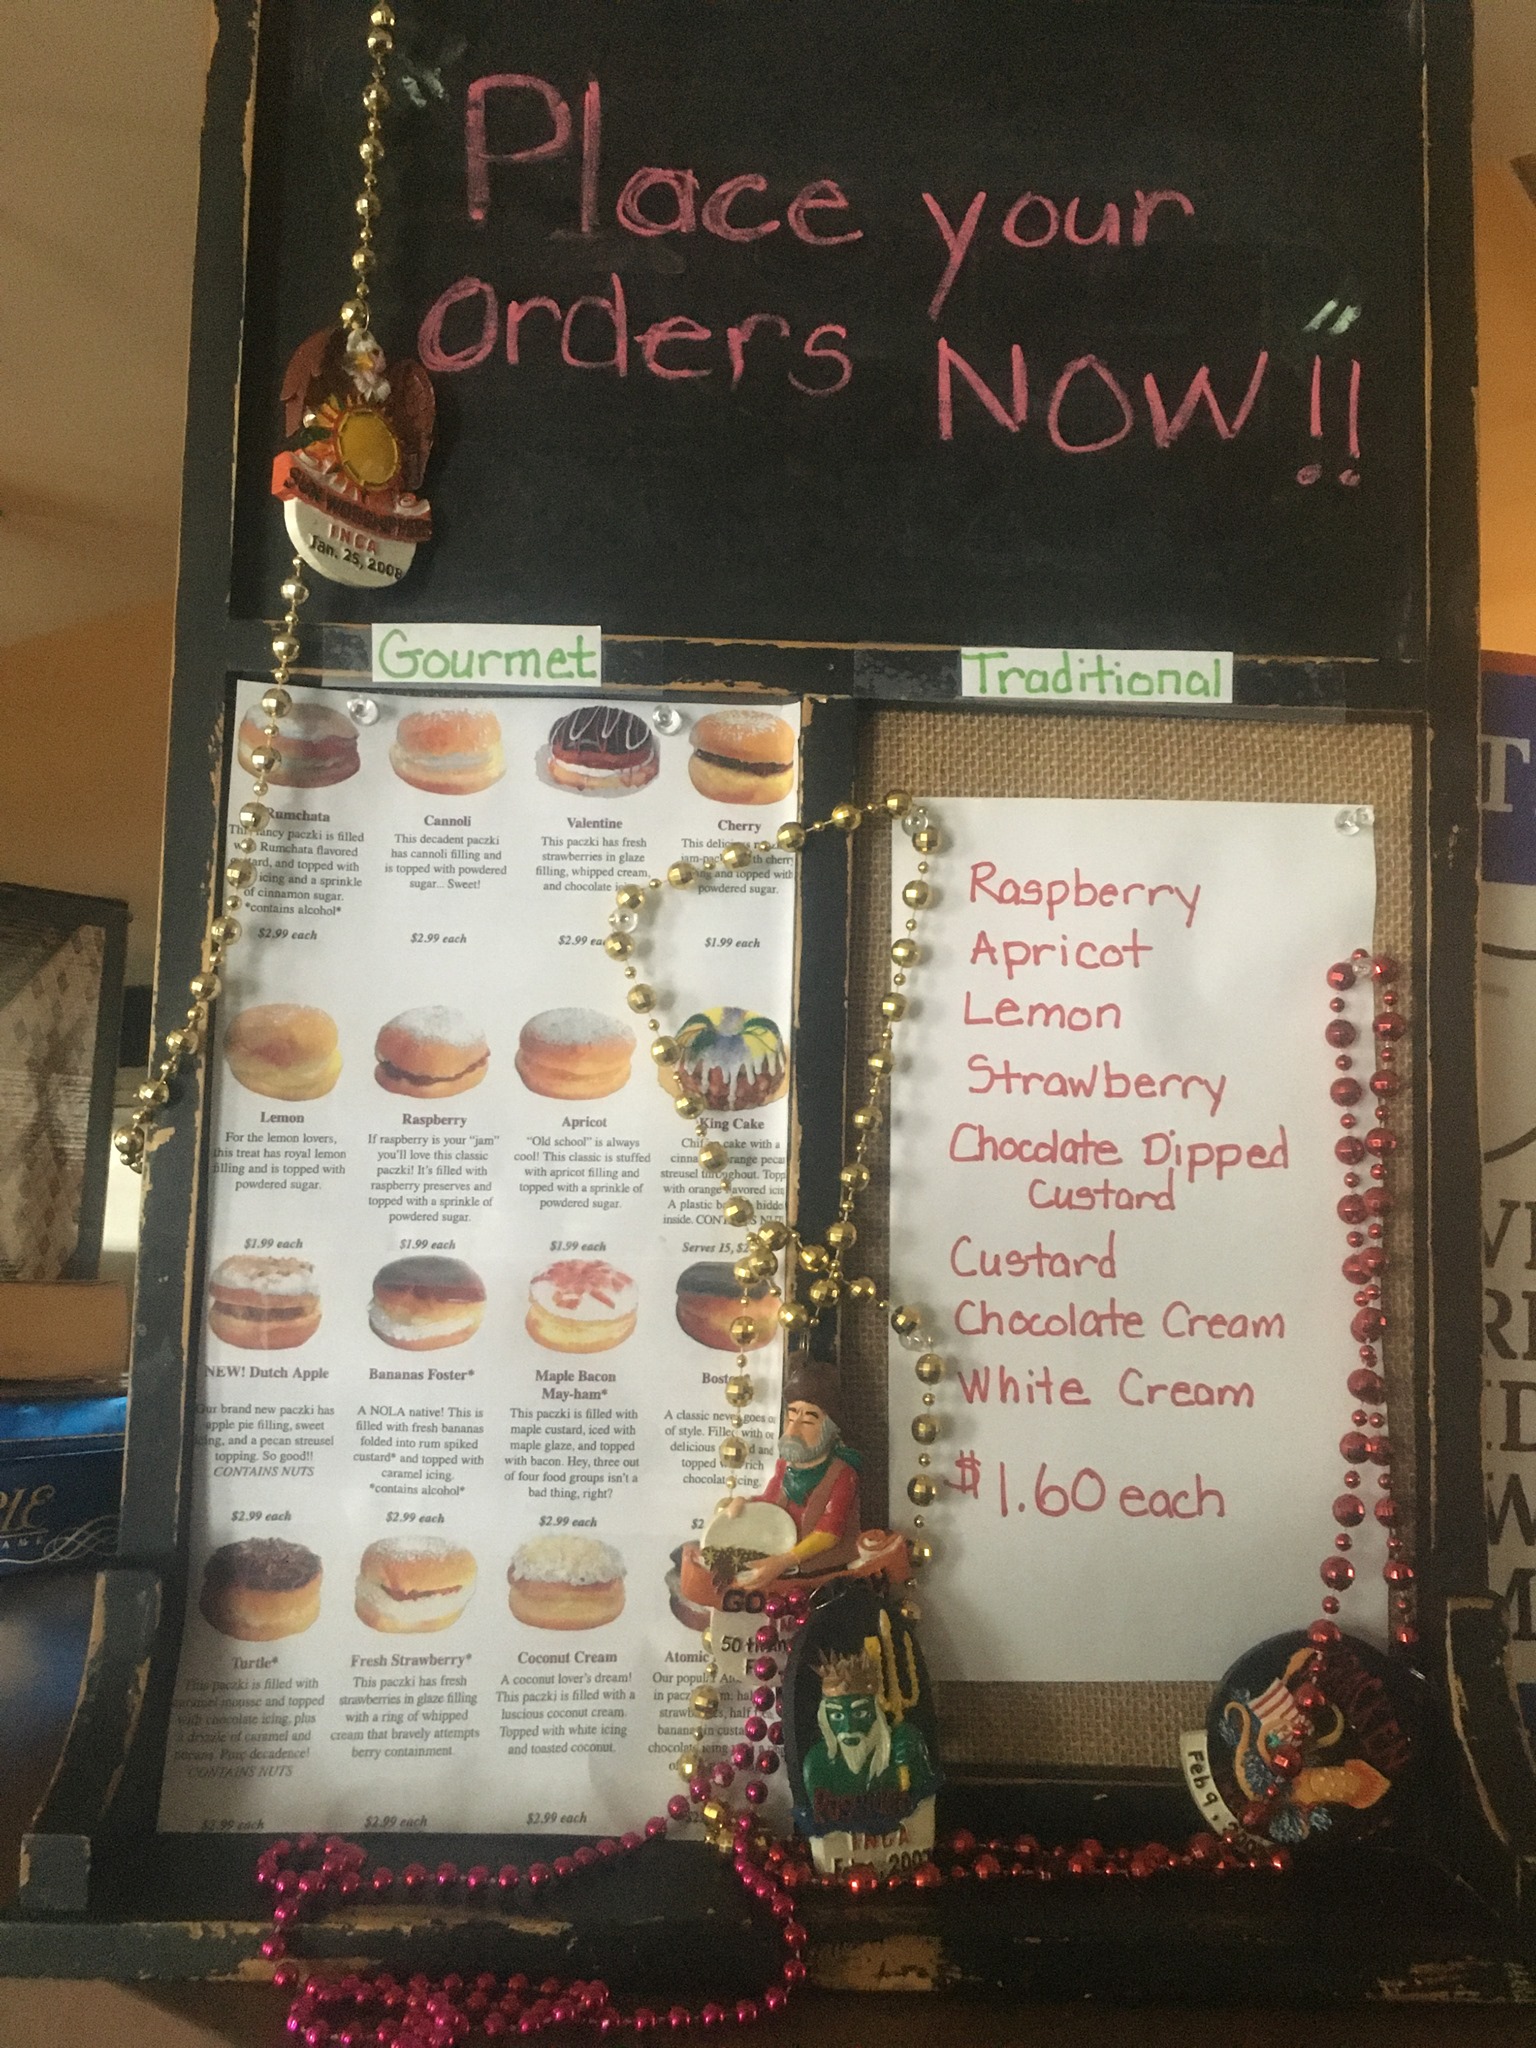 Place your
orders NOW!!
INCA
Jan. 25, 2008
Gourmet
Rumchata
fancy paczki is filled
Rumchata flavored
and topped with
icing and a sprinkle
of cinnamon sugar.
*contains alcohol*
$2.99 each
Cannoli
This decadent paczki
has cannoli filling and
is topped with powdered
sugar... Sweet!
$2.99 each
Valentine
This paczki has fresh
strawberries in glaze
filling, whipped cream,
and chocolate
$2.99
Cherry
This
cherry
and topped with
powdered sugar.
$1.99 each
Lemon
For the lemon lovers,
this treat has royal lemon
filling and is topped with
powdered sugar.
$1.99 each
Raspberry
If raspberry is your "jam"
you'll love this classic
paczki! It's filled with
raspberry preserves and
topped with a sprinkle of
powdered sugar.
$1.99 each
Apricot
"Old school" is always
cool! This classic is stuffed
with apricot filling and
topped with a sprinkle of
powdered sugar.
$1.99 each
King Cake
cake with a
streusel throughout.
with orange flavored
A plastic
inside.
Serves 15,
NEW! Dutch Apple
Our brand new paczki has
apple pie filling, sweet
icing, and a pecan streusel
topping. So good!!
CONTAINS NUTS
$2.99 each
Bananas Foster*
A NOLA native! This is
filled with fresh bananas
folded into rum spiked
custard* and topped with
caramel icing.
*contains alcohol*
$2.99 each
Maple Bacon
May-ham*
This paczki is filled with
maple custard, iced with
maple glaze, and topped
with bacon. Hey, three out
of four food groups isn't a
bad thing, right?
$2.99 each
A classic never goes
of style. Filled with
delicious and
topped rich
Turtle*
This paczki is filled with
caramel mousse and topped
with chocolate icing, plus
a drizzle of caramel and
pecans. Pure decadence!
CONTAINS NUTS
$2.99 each
Fresh Strawberry*
This paczki has fresh
strawberries in glaze filling
with a ring of whipped
cream that bravely attempts
berry containment.
$2.99 each
Coconut Cream
A coconut lover's dream!
This paczki is filled with a
luscious coconut cream.
Topped with white icing
and toasted coconut.
$2.99 each
Atomic
Our
in
half
banana in
Traditional
Raspberry
Apricot
Lemon
Strawberry
Chocolate Dipped
Custard
Custard
Chocolate Cream
White Cream
$1.60 each
INCA
2007
Feb 9,